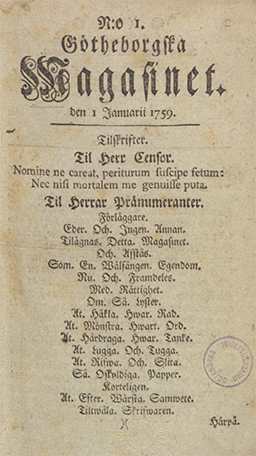 N:o 1.
Götheborgska
Magasinet.
den 1 Januarii 1759.
Tilskrifter.
Til Herr Censor.
Nomine ne careat, periturum suscipe fetum:
Nec nisi mortalem me genuisse puta.
Til Herrar Pränumeranter.
Förläggare.
Eder. Och. Ingen. Annan.
Tilägnas. Detta. Magasinet.
Och. Afstås.
Som. En. Wälfången. Egendom.
Nu. Och. Framdeles.
Med. Rättighet.
Om. Så. Lyster.
At. Häkla. Hwar. Rad.
At. Mönstra. Hwart. Ord.
At. Hårdraga. Hwar. Tanke.
At. Lugga. Och. Tugga.
At. Rifwa. Och. Slita.
Så. Oskyldiga. Papper.
Korteligen.
At. Efter. Wärsta. Samwete.
Tiltwåla. Skrifwaren.
Härpå.